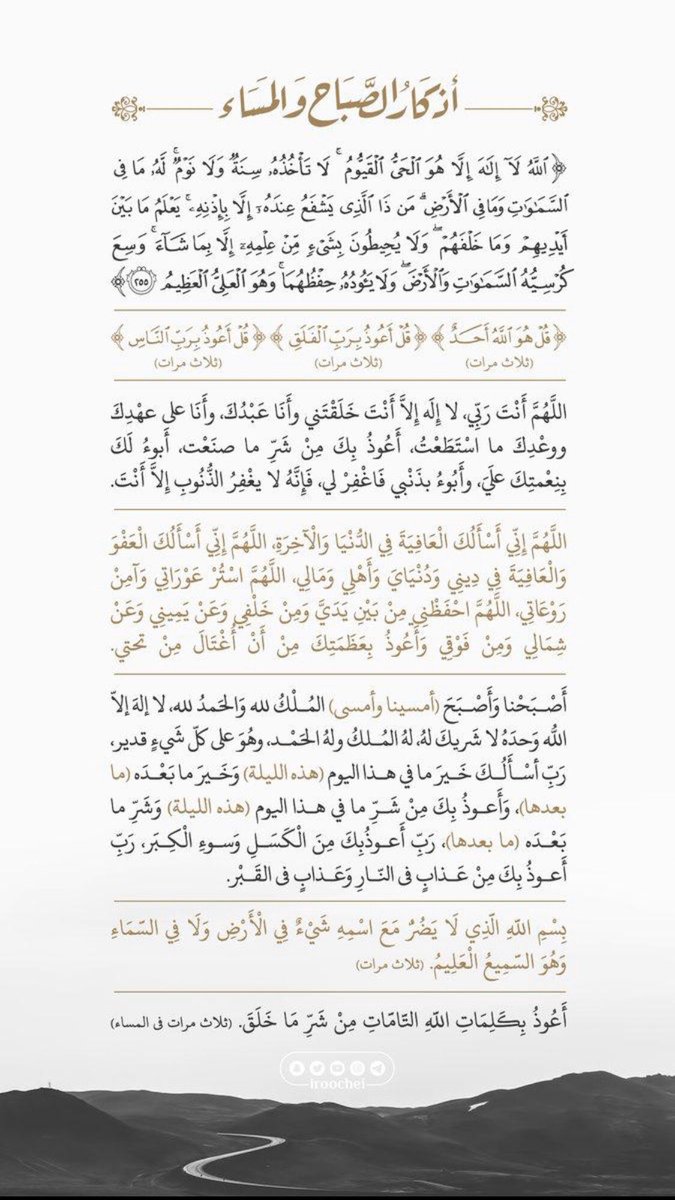 أذكار الصَّبَاحِ وَالمَسَاء
﴿ ٱللَّهُ لَآ إِلَٰهَ إِلَّا هُوَ ٱلْحَىُّ ٱلْقَيُّومُ ۚ لَا تَأْخُذُهُۥ سِنَةٌ وَلَا نَوْمٌ ۚ لَّهُۥ مَا فِى
ٱلسَّمَٰوَٰتِ وَمَا فِى ٱلْأَرْضِ ۗ مَن ذَا ٱلَّذِى يَشْفَعُ عِندَهُۥٓ إِلَّا بِإِذْنِهِۦ ۚ يَعْلَمُ مَا بَيْنَ
أَيْدِيهِمْ وَمَا خَلْفَهُمْ ۖ وَلَا يُحِيطُونَ بِشَىْءٍ مِّنْ عِلْمِهِۦٓ إِلَّا بِمَا شَآءَ ۚ وَسِعَ
كُرْسِيُّهُ ٱلسَّمَٰوَٰتِ وَٱلْأَرْضَ ۖ وَلَا يَـُٔودُهُۥ حِفْظُهُمَا ۚ وَهُوَ ٱلْعَلِىُّ ٱلْعَظِيمُ ٢٥٥ ﴾
﴿ قُلْ هُوَ ٱللَّهُ أَحَدٌ ﴾ ﴿ قُلْ أَعُوذُ بِرَبِّ ٱلْفَلَقِ ﴾ ﴿ قُلْ أَعُوذُ بِرَبِّ ٱلنَّاسِ ﴾
(ثلاث مرات) (ثلاث مرات) (ثلاث مرات)
اللَّهُمَّ أَنْتَ رَبِّي، لا إِلَه إِلاَّ أَنْتَ خَلَقْتَني وأَنَا عَبْدُكَ، وأَنَا على عهْدِكَ
ووعْدِكَ ما اسْتَطَعْتُ، أَعُوذُ بِكَ مِنْ شَرِّ ما صنَعْت، أَبوءُ لَكَ
بِنِعْمتِكَ علَيَ، وأَبُوءُ بذَنْبي فَاغْفِرْ لي، فَإِنَّهُ لا يغْفِرُ الذُّنُوبِ إِلاَّ أَنْتَ.
اللَّهُمَّ إِنِّي أَسْأَلُكَ الْعَافِيَةَ فِي الدُّنْيَا وَالْآخِرَةِ، اللَّهُمَّ إِنِّي أَسْأَلُكَ الْعَفْوَ
وَالْعَافِيَةَ فِي دِينِي وَدُنْيَايَ وَأَهْلِي وَمَالِي، اللَّهُمَّ اسْتُرْ عَوْرَاتِي وَآمِنْ
رَوْعَاتِي، اللَّهُمَّ احْفَظْنِي مِنْ بَيْنِ يَدَيَّ وَمِنْ خَلْفِي وَعَنْ يَمِينِي وَعَنْ
شِمَالِي وَمِنْ فَوْقِي وَأَعُوذُ بِعَظَمَتِكَ مِنْ أَنْ أُغْتَالَ مِنْ تحتي.
أَصْـبَحْنا وَأَصْـبَحَ (أمسينا وأمسى) المُـلْكُ لله وَالحَمدُ لله، لا إلهَ إلاّ
اللّٰه وَحدَهُ لا شَريكَ لهُ، لهُ المُـلكُ ولهُ الحَمْـد، وهُوَ على كلّ شَيءٍ قدير،
رَبِّ أسْـأَلُـكَ خَيرَ ما في هـذا اليوم (هذه الليلة) وَخَيرَ ما بَعْـدَه (ما
بعدها)، وَأَعـوذُ بِكَ مِنْ شَـرِّ ما في هـذا اليوم (هذه الليلة) وَشَرِّ ما
بَعْـدَه (ما بعدها)، رَبِّ أَعـوذُبِكَ مِنَ الْكَسَلِ وَسـوءِ الْكِبَر، رَبِّ
أَعـوذُ بِكَ مِنْ عَـذابٍ في النّـارِ وَعَـذابٍ في القَـبْر.
بِسْمِ اللّٰهِ الَّذِي لَا يَضُرُّ مَعَ اسْمِهِ شَيْءٌ فِي الْأَرْضِ وَلَا فِي السَّمَاءِ
وَهُوَ السَّمِيعُ الْعَلِيمُ. (ثلاث مرات)
أَعُوذُ بِكَلِمَاتِ اللّٰهِ التَّامَّاتِ مِنْ شَرِّ مَا خَلَقَ. (ثلاث مرات في المساء)
iroochei